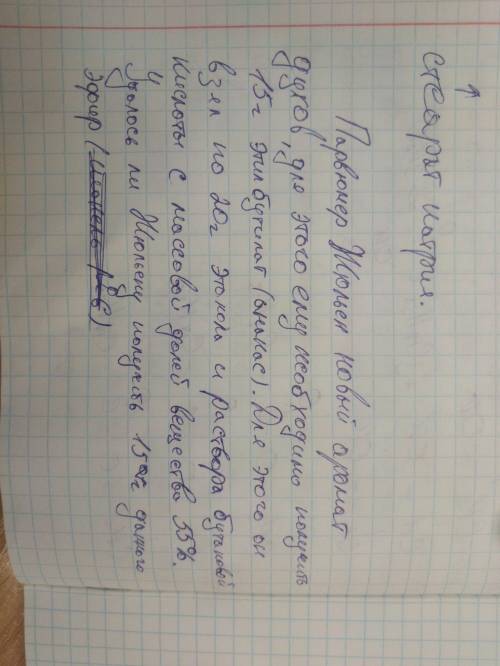 ↑
стеарат натрия.
Парвюмер Жюльен новый аромат
духов, для этого ему необходимо получить
15г этилбутилат (ананас). Для этого он
взял по 20г этанола и раствора бутановой
кислоты с массовой долей вещества 55%.
Удалось ли Жюльену получить 15г данного
эфир (